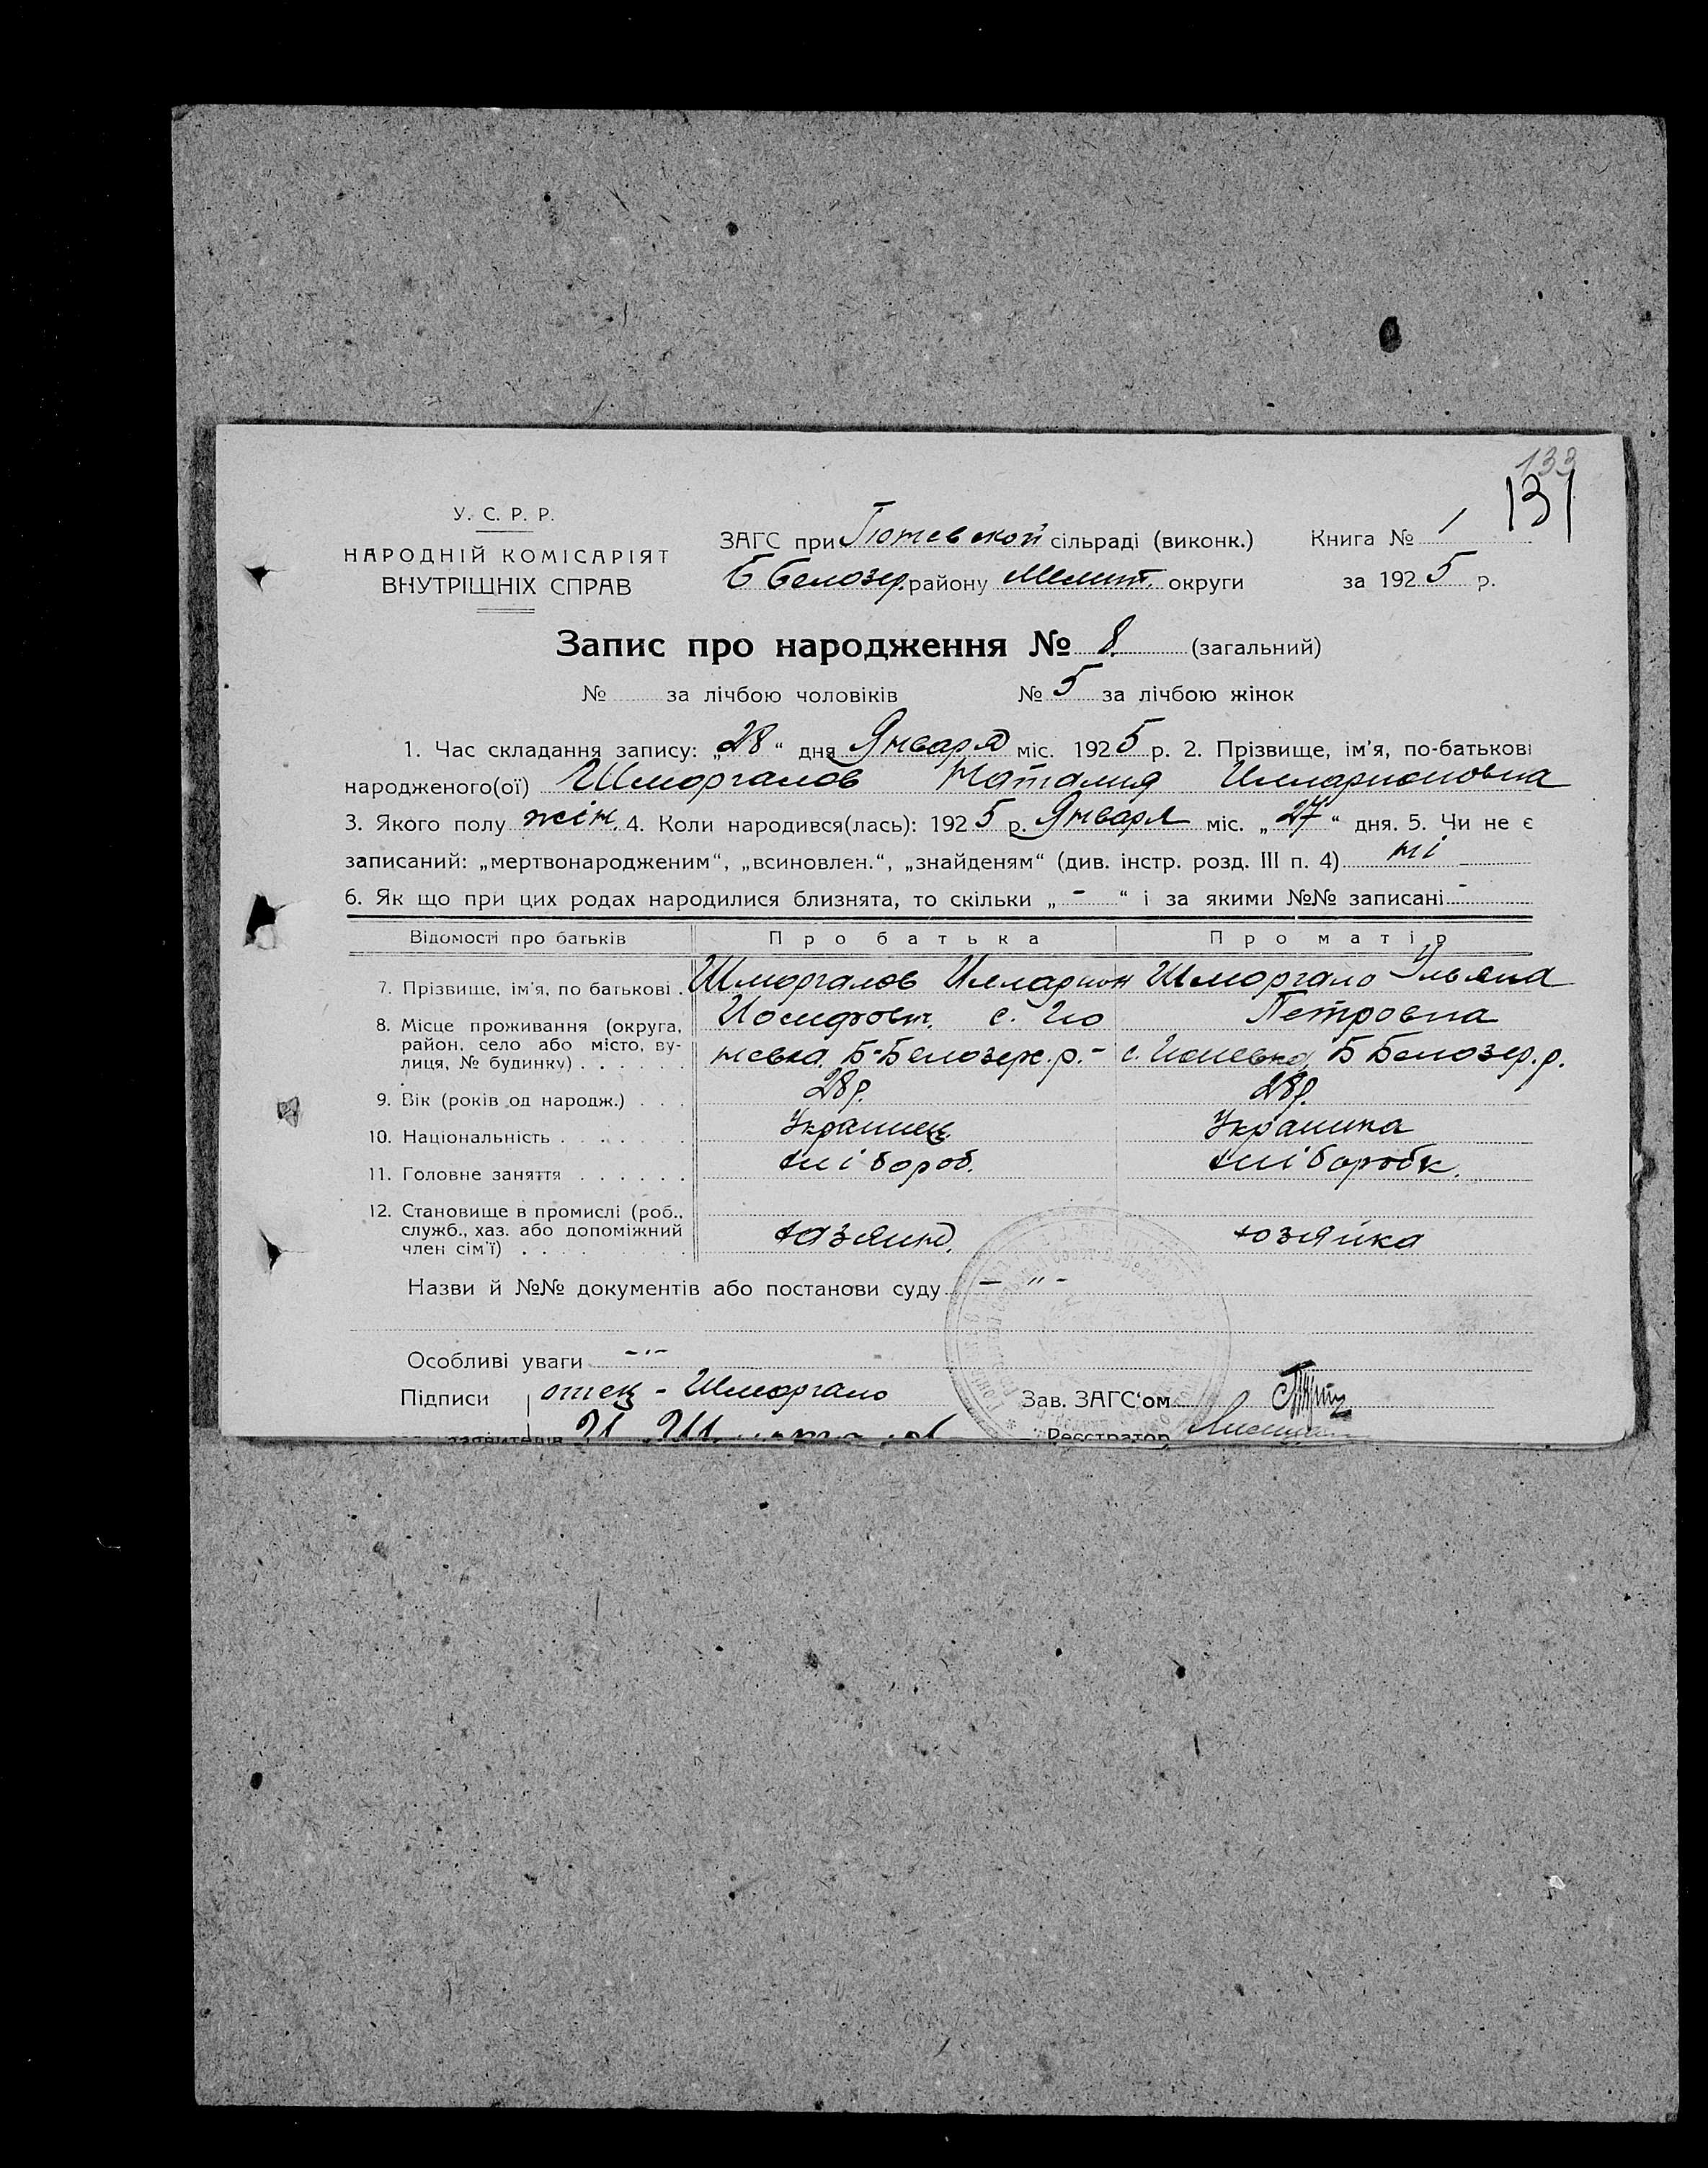 133
131
У. С. Р. Р.
НАРОДНІЙ КОМІСАРІЯТ
ВНУТРІШНІХ СПРАВ
ЗАГС при Гюневской сільраді (виконк.) Книга № 1
Б Белозер. району Мелит. округи за 1925 р.
Запис про народження № 8. (загальний)
№ за лічбою чоловіків № 5 за лічбою жінок
1. Час складання запису: „28“ дня Января міс. 1925 р. 2. Прізвище, ім'я, по-батькові
народженого(ої) Шморгалов Наталия Илларионовна
3. Якого полу жін. 4. Коли народився(лась): 1925 р. Января міс. „27“ дня. 5. Чи не є
записаний: „мертвонародженим“, „всиновлен.“, „знайденям“ (див. інстр. розд. III п. 4) ні
6. Як що при цих родах народилися близнята, то скільки „-“ і за якими №№ записані -
Відомості про батьків Про батька Про матір
7. Прізвище, ім'я, по батькові . Шморгалов Илларион Шморгало Ульяна
Иосифовт. с. Гю Петровна
8. Місце проживання (округа, район, село або місто, вулиця, № будинку) . . . . . . невка, Б-Белозерк. р.- с. Гюневка, Б Белозер. р.
9. Вік (років од народж.) . . . 28 р. 28 р.
10. Національність . . . . . . Украинец Украинка
11. Головне заняття . . . . . . хлібороб. хліборобк.
12. Становище в промислі (роб., служб., хаз. або допоміжний член сім'ї) . . . . хазяин. хозяйка
Назви й №№ документів або постанови суду - „ -
Особливі уваги - „ -
Підписи отец - Шморгало Зав. ЗАГС'ом
заявителів И. Реєстратор